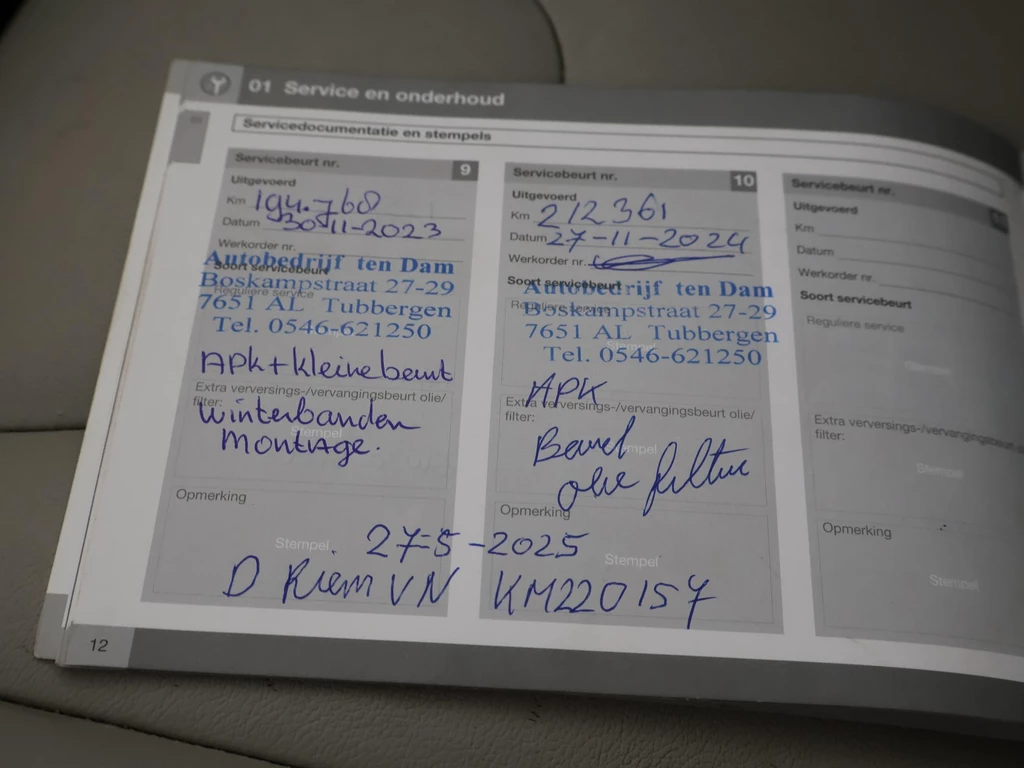 01 Service en onderhoud
Servicedocumentatie en stempels
Servicebeurt nr. 9
Uitgevoerd
Km 194.768
Datum 30-11-2023
Werkorder nr.
Autobedrijf ten Dam
Soort servicebeurt
Boskampstraat 27-29
Reguliere service
7651 AL Tubbergen
Tel. 0546-621250
APK + kleine beurt
Extra verversings-/vervangingsbeurt olie/
filter:
Winterbanden
montage.
Stempel
Opmerking
Stempel
Servicebeurt nr. 10
Uitgevoerd
Km 212361
Datum 27-11-2024
Werkorder nr.
Soort servicebeurt
Autobedrijf ten Dam
Reguliere service
Boskampstraat 27-29
7651 AL Tubbergen
Stempel
Tel. 0546-621250
APK
Extra verversings-/vervangingsbeurt olie/
filter:
Beurt
Stempel
olie filter
Opmerking
Stempel
27-5-2025
D Riem VN KM220157
Servicebeurt nr.
Uitgevoerd
Km
Datum
Werkorder nr.
Soort servicebeurt
Reguliere service
Stempel
Extra verversings-/vervangingsbeurt
filter:
Stempel
Opmerking
Stempel
12